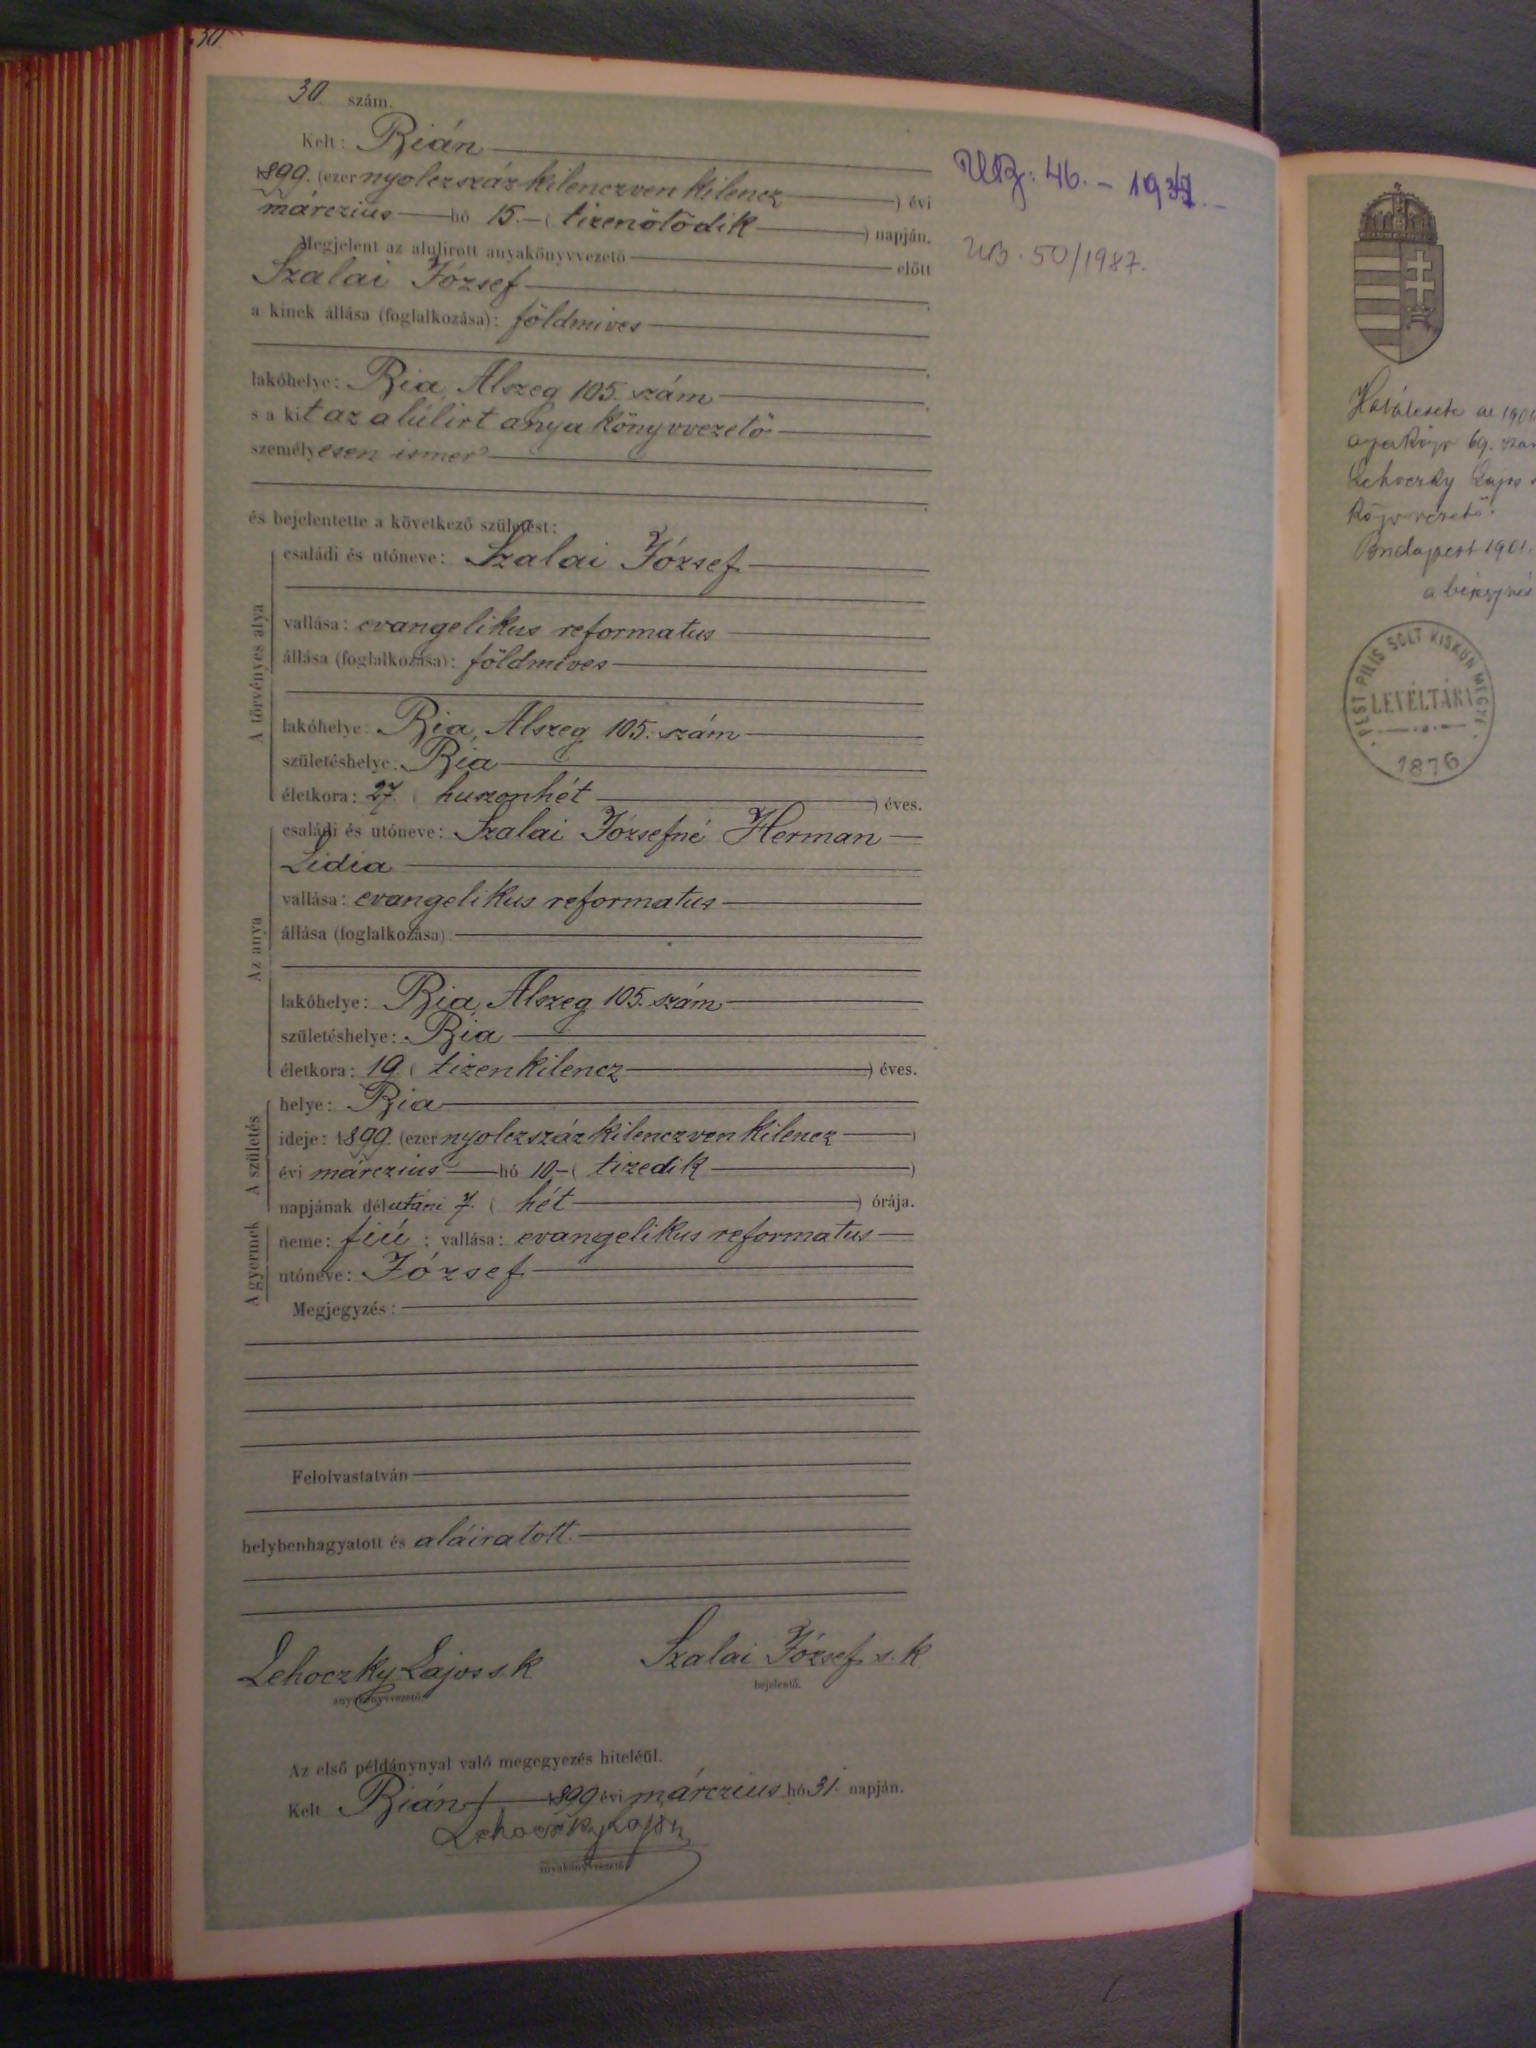 30.
30. szám.
Kelt: Bián
1899. (ezer nyolczszáz kilenczven kilencz ) évi
márczius hó 15.- ( tizenötödik ) napján.
Megjelent az alulirott anyakönyvvezető előtt
Szalai József
a kinek állása (foglalkozása): földmives
lakóhelye: Bia, Alszeg 105. szám
s a kit az alúlirt anyakönyvvezető
személyesen ismer
és bejelentette a következő születést:
A törvényes atya
családi és utóneve: Szalai József
vallása: evangelikus reformatus
állása (foglalkozása): földmives
lakóhelye: Bia, Alszeg 105. szám
születéshelye: Bia
életkora: 27. ( huszonhét ) éves.
Az anya
családi és utóneve: Szalai Józsefné Herman
Lidia
vallása: evangelikus reformatus
állása (foglalkozása):
lakóhelye: Bia, Alszeg 105. szám
születéshelye: Bia
életkora: 19. ( tizenkilencz ) éves.
A születés
helye: Bia
ideje: 1899. (ezer nyolczszáz kilenczven kilencz )
évi márczius hó 10- ( tizedik )
napjának délutáni 7. ( hét ) órája.
A gyermek
neme: fiú ; vallása: evangelikus reformatus
utóneve: József
Megjegyzés:
Felolvastatván
helybenhagyatott és aláiratott.
Lehoczky Lajos s. k
anyakönyvvezető.
Szalai József s. k
bejelentő.
Az első példánynyal való megegyezés hiteléül.
Kelt Bián 1899 évi márczius hó 31. napján.
Lehoczky Lajos
anyakönyvvezető
46. - 1937.-
UB. 50/1987.
az 1901
69. szám
Lehoczky Lajos
Budapest 1901.
PEST PILIS SOLT KISKUN MEGYE
LEVÉLTÁRA
1876